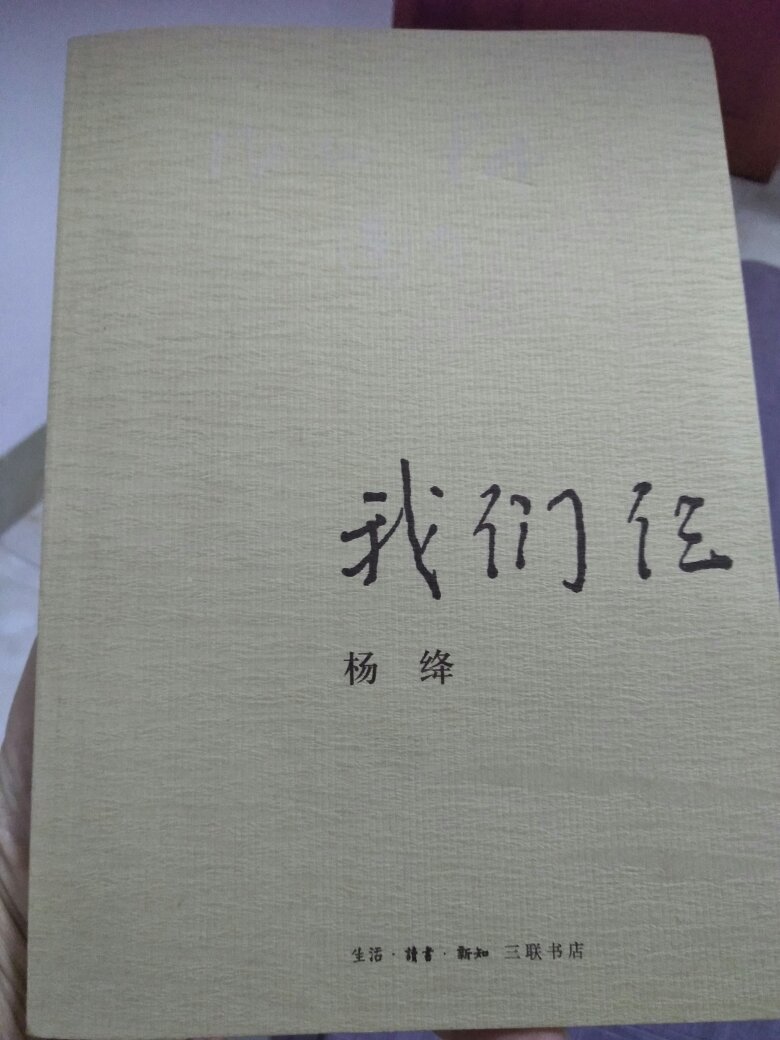 我们仨
杨 绛
生活·讀書·新知 三联书店